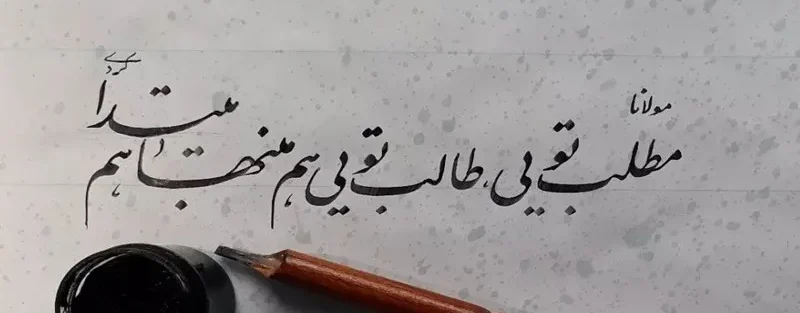 مولانا
مطلب تویی، طالب تویی هم منتها هم
مبتدا